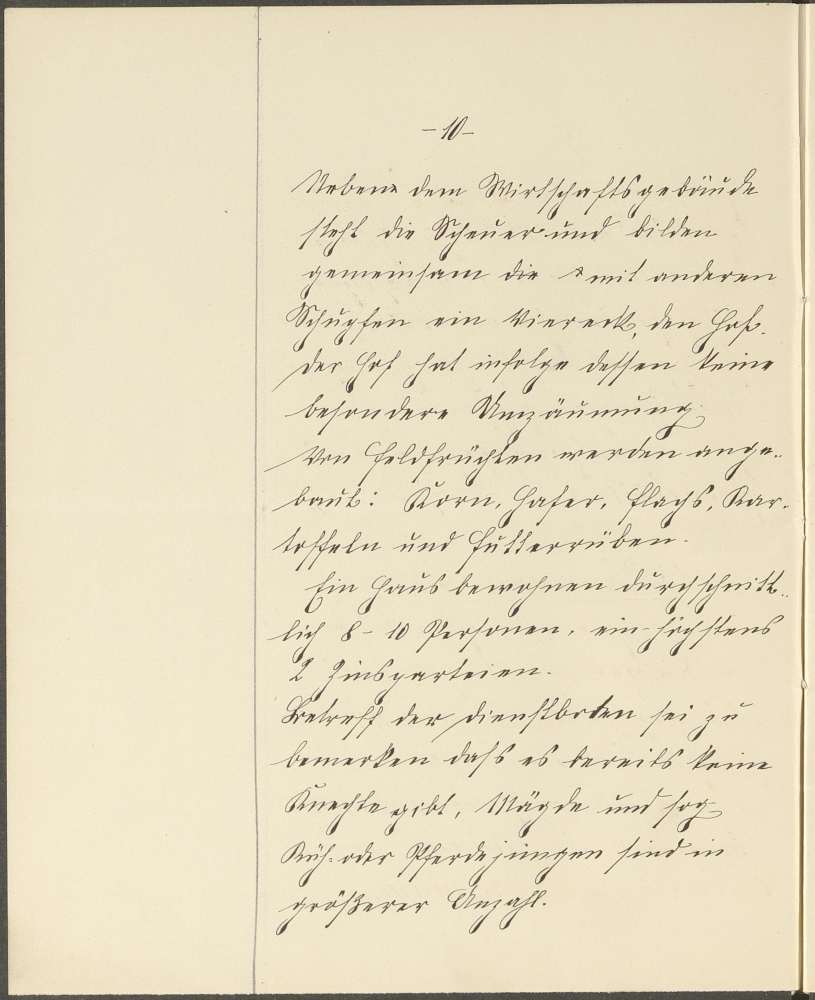 - 10 -
Neben dem Wirtschaftsgebäude
steht die Scheuer und bilden
gemeinsam die mit anderen
Schupfen ein Viereck, den Hof.
Der Hof hat infolge dessen keine
besondere Umzäumung.
Von Feldfrüchten werden ange-
baut: Korn, Hafer, Flachs, Kar-
toffeln und Futterrüben.
Ein Haus bewohnen durchschnitt-
lich 8 - 10 Personen, ein höchstens
2 Zinsparteien.
Betreff der Dienstboten sei zu
bemerken dafs es bereits keine
Knechte gibt, Mägde und sog.
Küh- oder Pferdejungen sind in
größerer Anzahl.